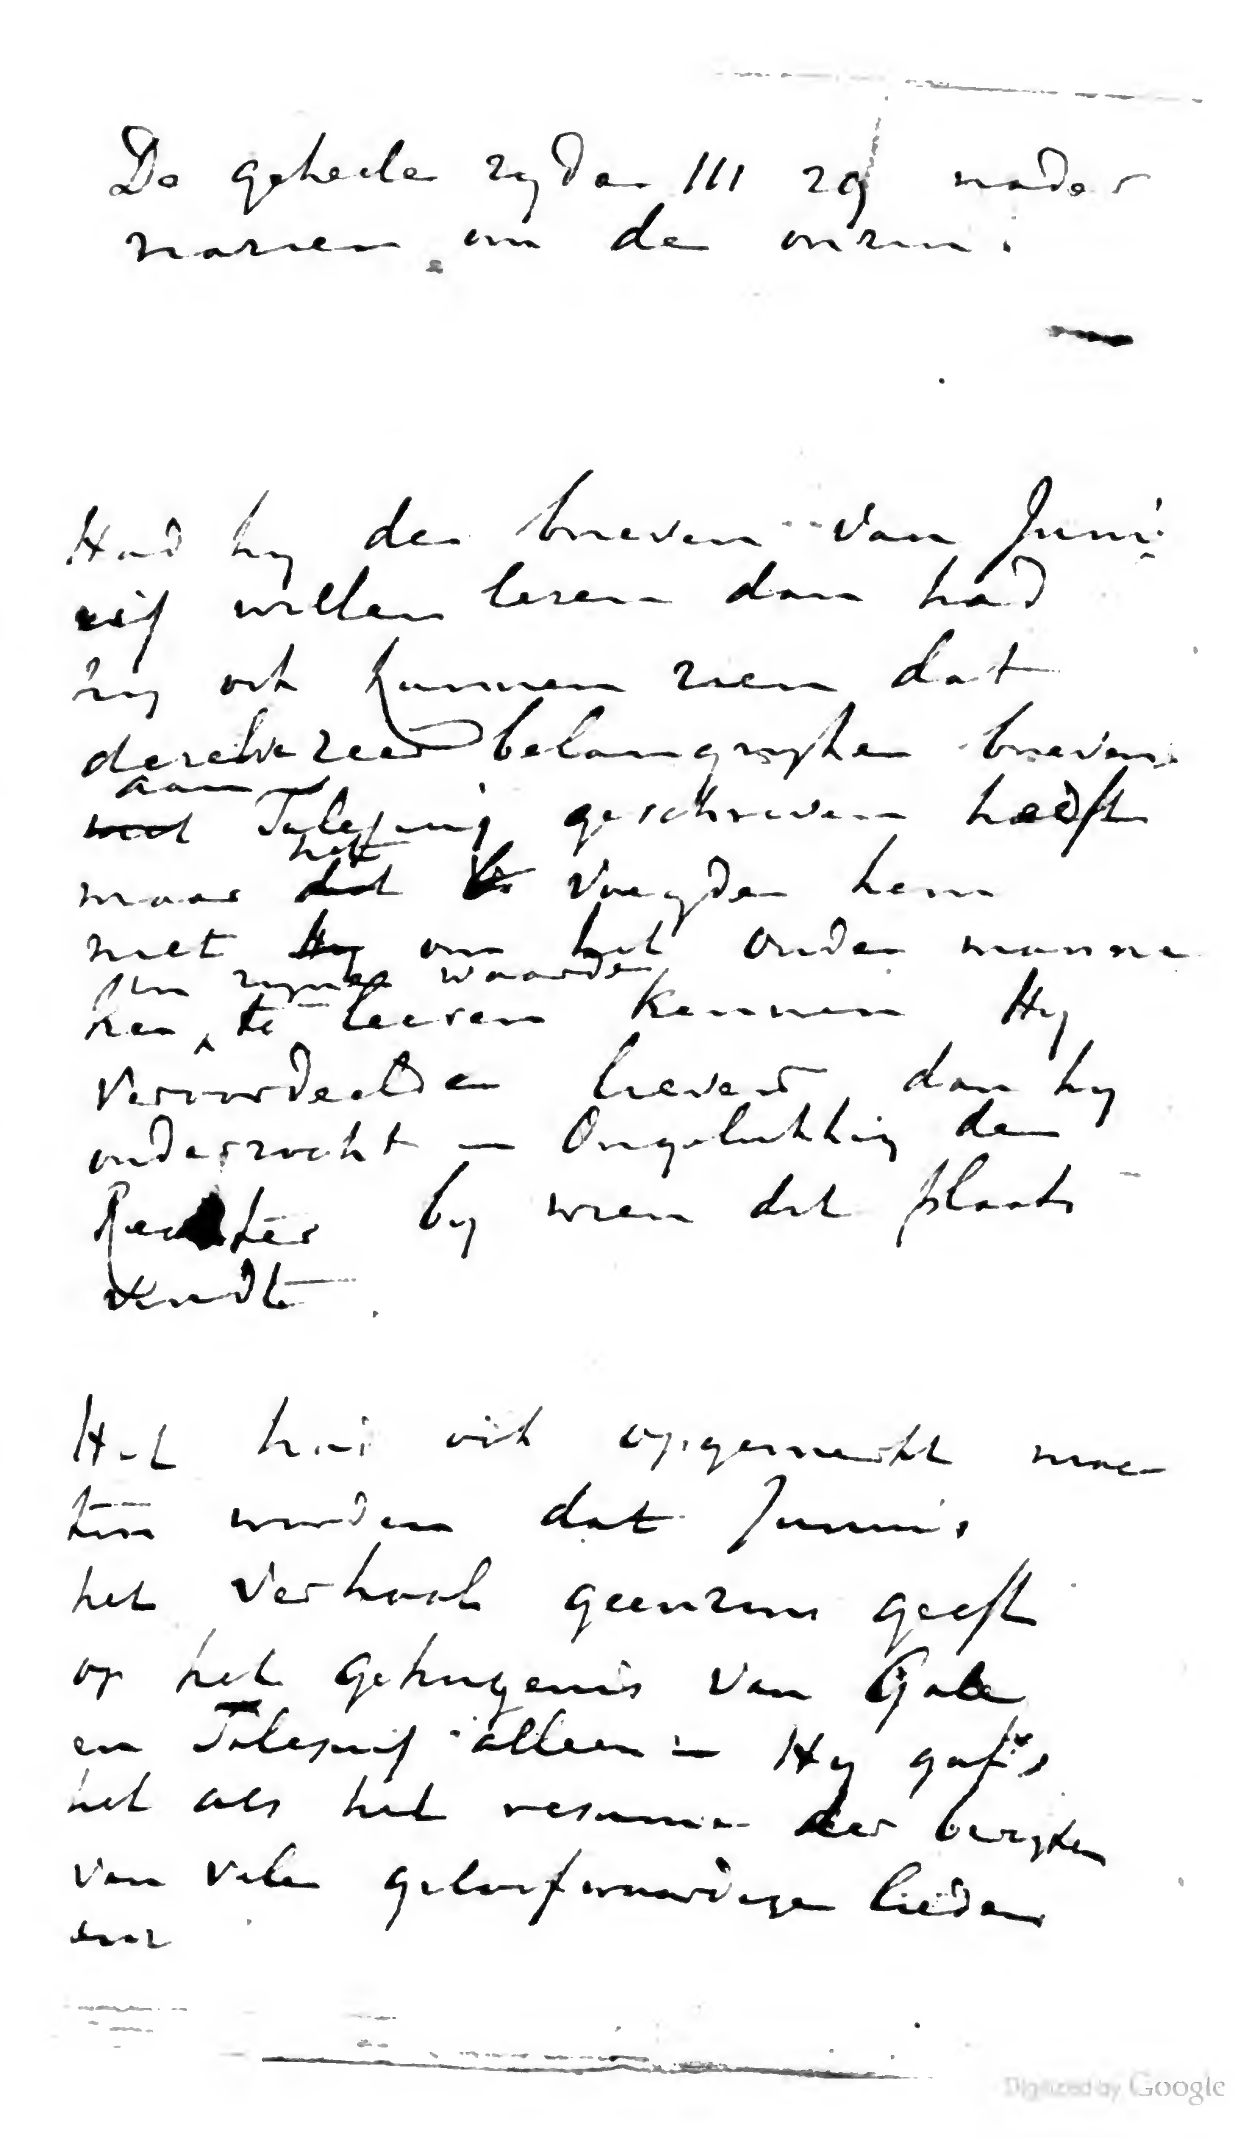 De geheele zyden III 29 nader
nazien om de onzin
Had hy de brieven van Juni
us willen lezen dan had
hy ook kunnen zien dat
dezelve zeer belangryken brieven
aan
Talesius geschreven heeft
het
maar voegden hem
niet om het oude manne
in zyne waarde
ken te leeren kennen Hy
veroordeelde liever dan hy
onderzocht — Ongelukkig de
Rechter by wien dit plaats
vindt
Het hier ook opgemerkt moe
ten worden dat Junius
het verhaal geenzins geeft
op het getuigenis van Gale
en Talesius alleen — Hy gaf
het als het resume der berigten
van vele geloofwaardige lieden
enz
Digitized by Google